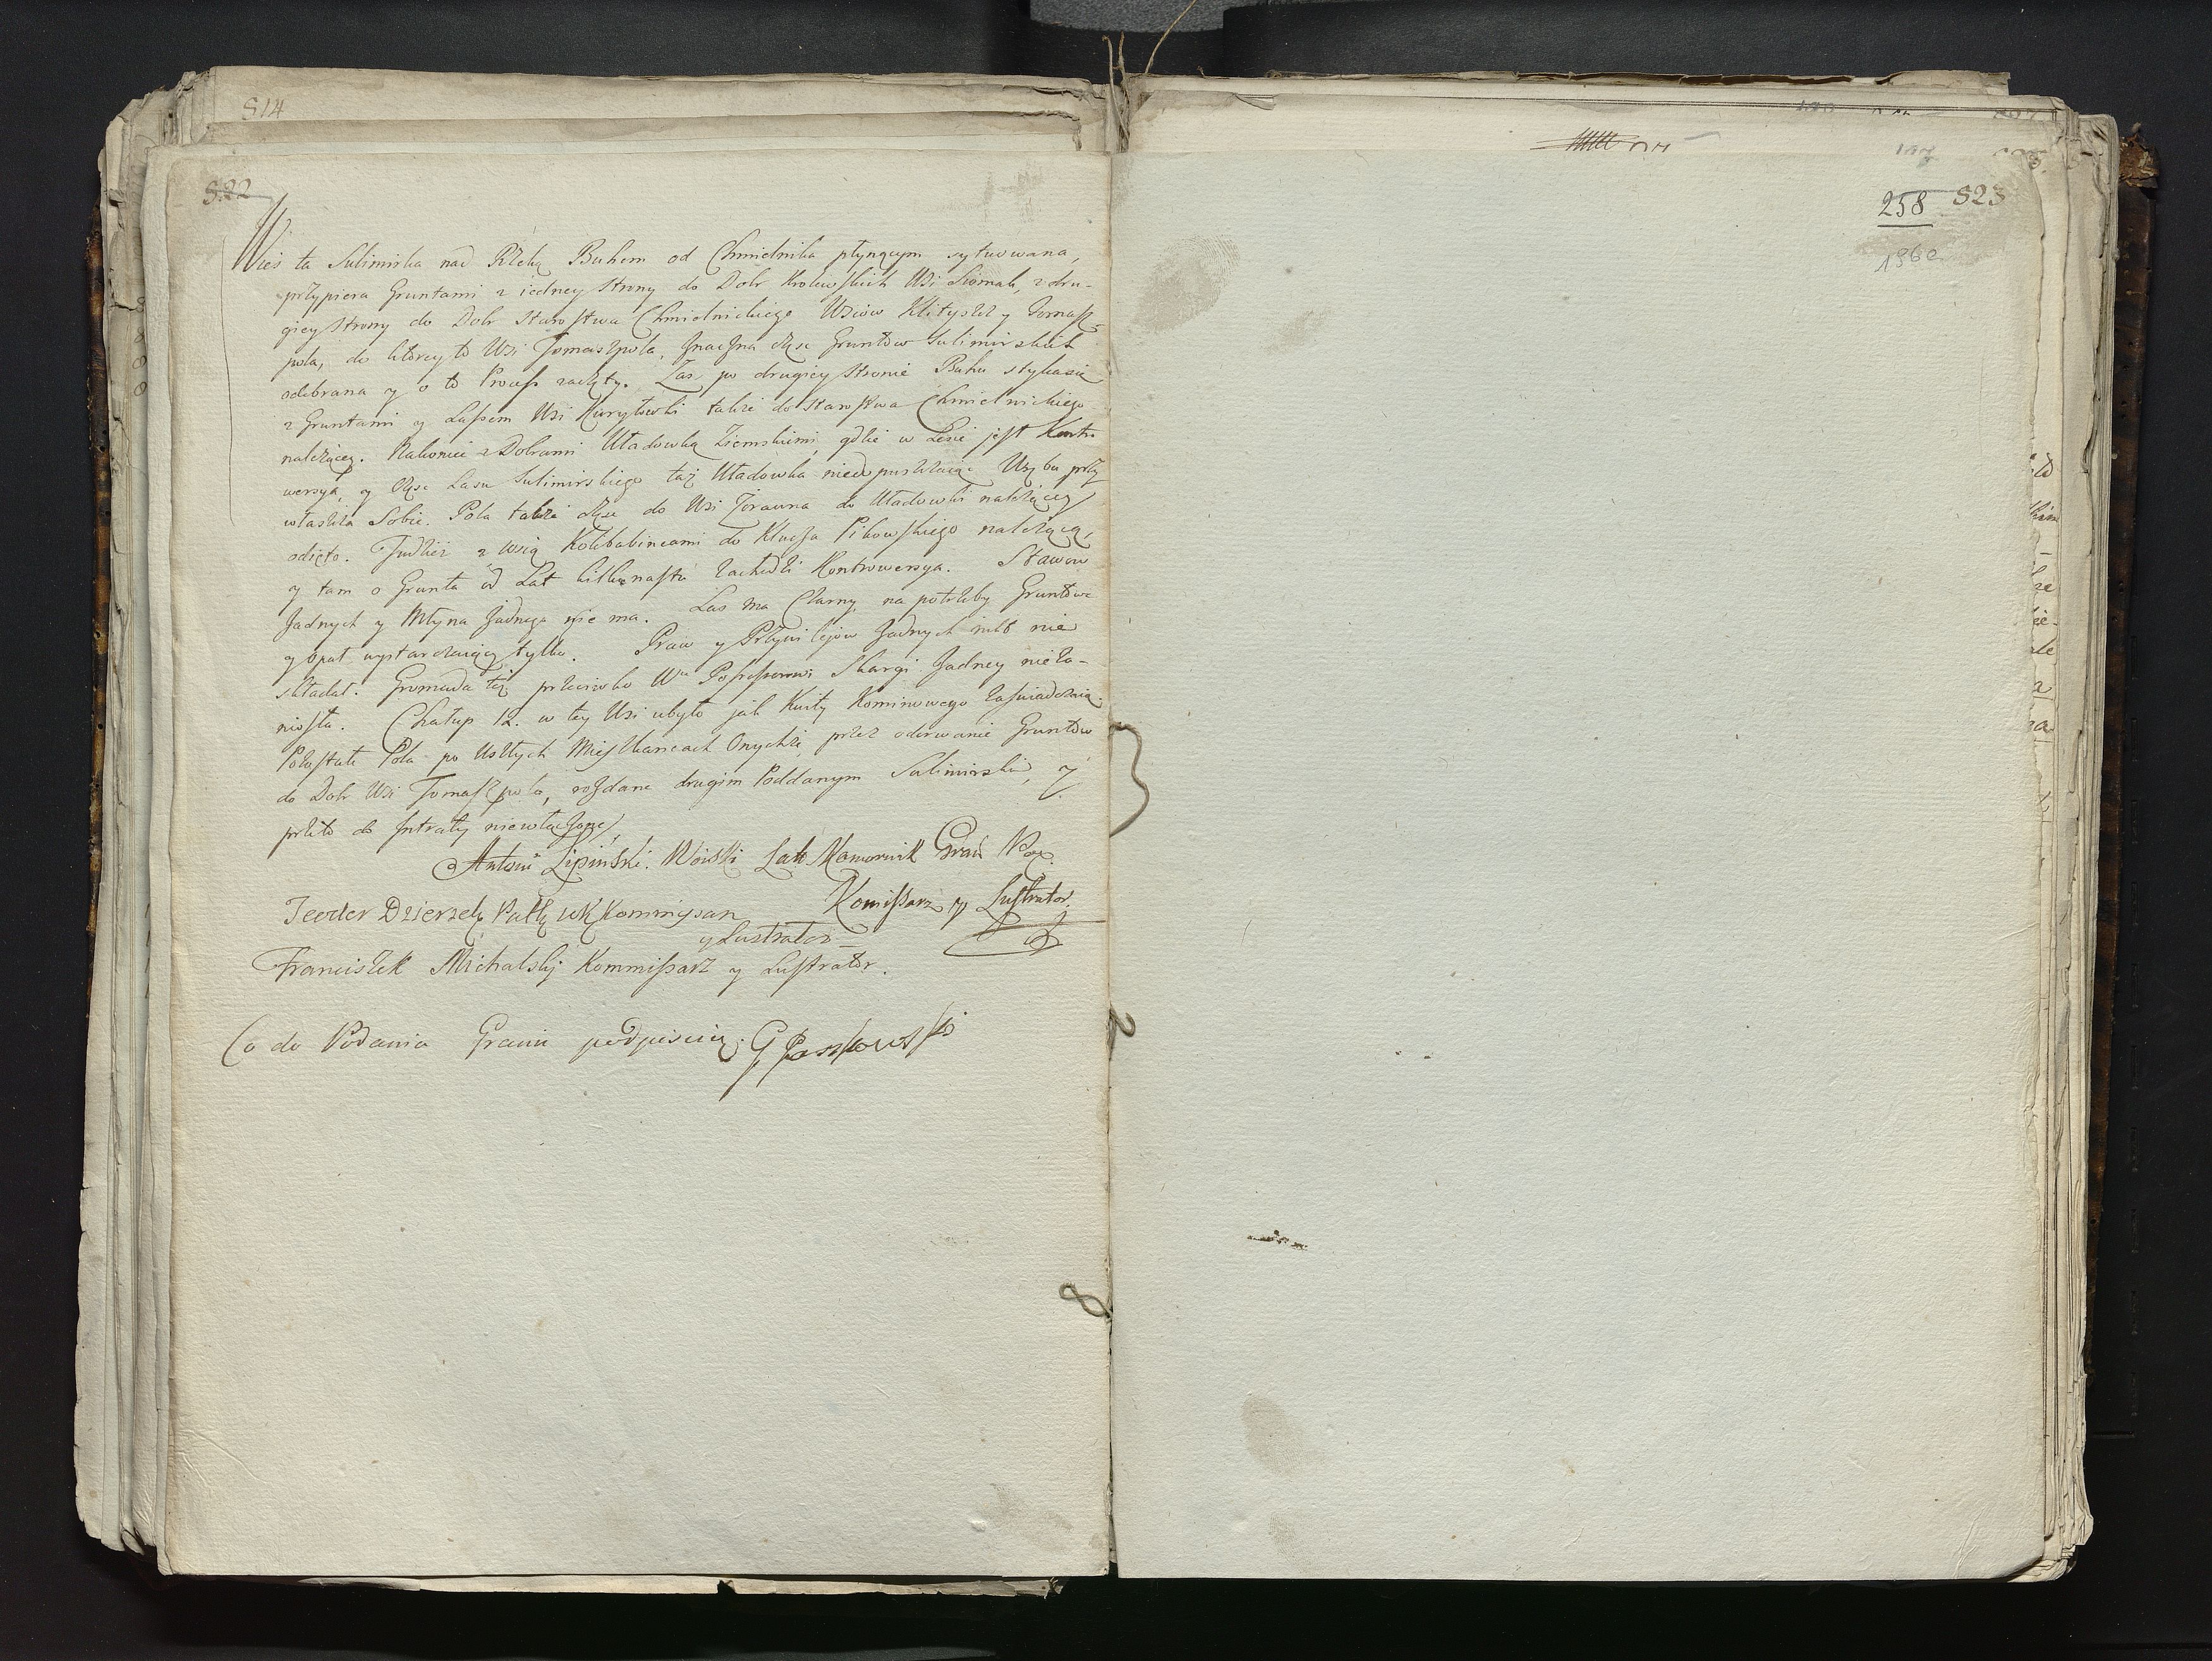 814
822
Wieś ta Sulimirka nad Rzeką Buhem od Chmielnika płynącym sytuowana,
przypiera Gruntami z iedney Strony do Dobr Krolewskich Wsi Siomak, z dru-
giey Strony do Dobr Starostwa Chmielnickiego Wsiow Klityszcz y Tomasz-
pola, do ktorey to Wsi Tomaszpola, znaczna częsc Gruntow Sulimirskich
odebrana y o to Process zaczęty. Zas po drugiey Stronie Buhu stykasię
z Gruntami y Lassem Wsi Kuryłowki także do Starostwa Chmielnickiego
należącey. Nakoniec z Dobrami Uładowką Ziemskiemi, gdzie w Lesie jest Kontro
wersya, y częsc Lasu Sulimirskiego taż Uładowka niedopuszczaiąc Wrębu przy
właszcza Sobie. Pola także częsc do Wsi Zorawna do Uładowki należącey
odięto. Tudzież z wsią Kołybabincami do Klucza Pikowskiego należącą,
y tam o Grunta od Lat kilkunastu zachodzi Kontrowersya. Stawow
żadnych y Młyna żadnego nie ma. Las ma Czarny, na potrzeby Gruntowe
y Opał wystarczaiący tylko. Praw y Przywilejow żadnych nikt nie
składał. Gromada też przeciwko Wu Possessorowi Skargi żadney nieza-
niosła. Chałup 12. w tey Wsi ubyło jak Kwity Kominowego zaświadczaią.
Pozostałe Pola po uszłych Mieszkancach Onychże, przez oderwanie Gruntow
do Dobr Wsi Tomaszpola, rozdane drugim Poddanym Sulimirskim, y
przeto do Intraty niewłączone,
Antoni Lipinski. Woiski Lat. Komornik Gran
Komissarz y Lustrator.
Teodor Dzierzek Kommisarz
y Lustrator
Franciszek Michalskj Kommissarz y Lustrator.
Co do Podania Granic podpisuię. G Paszkowski
258 823
1960